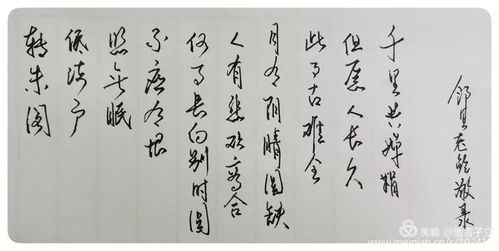 转朱阁
低绮户
照无眠
不应有恨
何事长向别时圆
人有悲欢离合
月有阴晴圆缺
此事古难全
但愿人长久
千里共婵娟
敬录
美篇